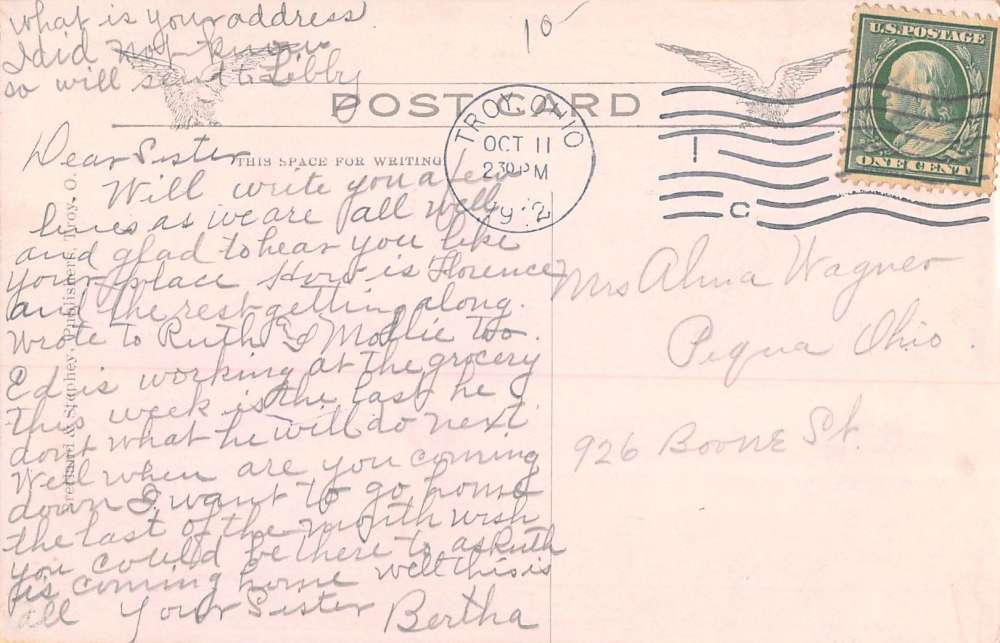 What is your address
I did not know
so will send to Libby
10
POST CARD
THIS SPACE FOR WRITING
TROY, OHIO
OCT 11
2 30 PM
U.S. POSTAGE
ONE CENT
Dear Sister
Will write you a few
lines as we are all well
and glad to hear you like
your place How is Florence
and the rest getting along.
Wrote to Ruth & Mollie too.
Ed is working at the grocery
this week is the last he
dont what he will do next
Well when are you coming
down I want to go home
the last of the month wish
you could be there to as Ruth
is coming home well this is
all Your Sister Bertha
Mrs Alma Wagner
Piqua Ohio.
926 Boone St.
& Stuphey, Publishers, Troy, O.